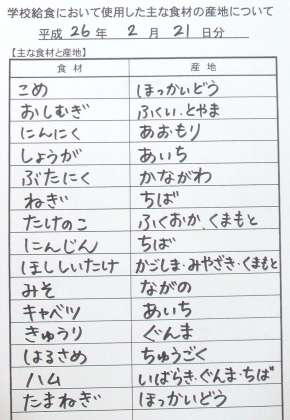 学校給食において使用した主な食材の産地について
平成 26 年 2 月 21 日分
【主な食材と産地】
食材 産地
こめ ほっかいどう
おしむぎ ふくい・とやま
にんにく あおもり
しょうが あいち
ぶたにく かながわ
ねぎ ちば
たけのこ ふくおか、くまもと
にんじん ちば
ほししいたけ かごしま・みやざき・くまもと
みそ ながの
キャベツ あいち
きゅうり ぐんま
はるさめ ちゅうごく
ハム いばらき・ぐんま・ちば
たまねぎ ほっかいどう